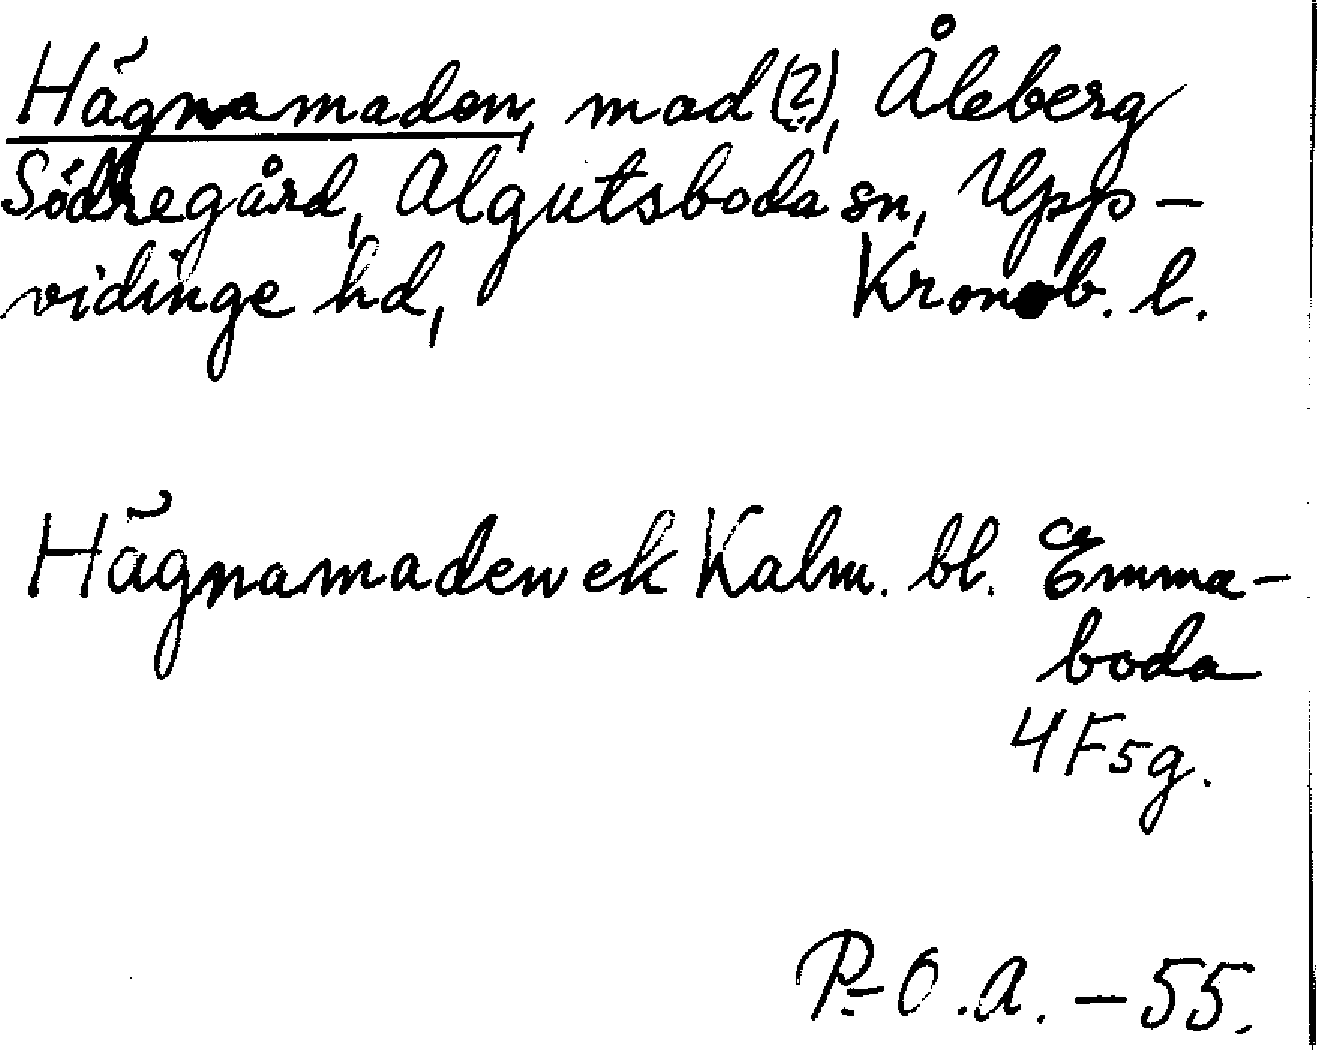 Hägnamaden, mad (?), Åleberg
Södregård, Algutsboda sn, Upp-
vidinge hd, Kronob. l.
Hägnamaden ek Kalm. bl. Emma-
boda
4F5g.
P-O.A. - 55.